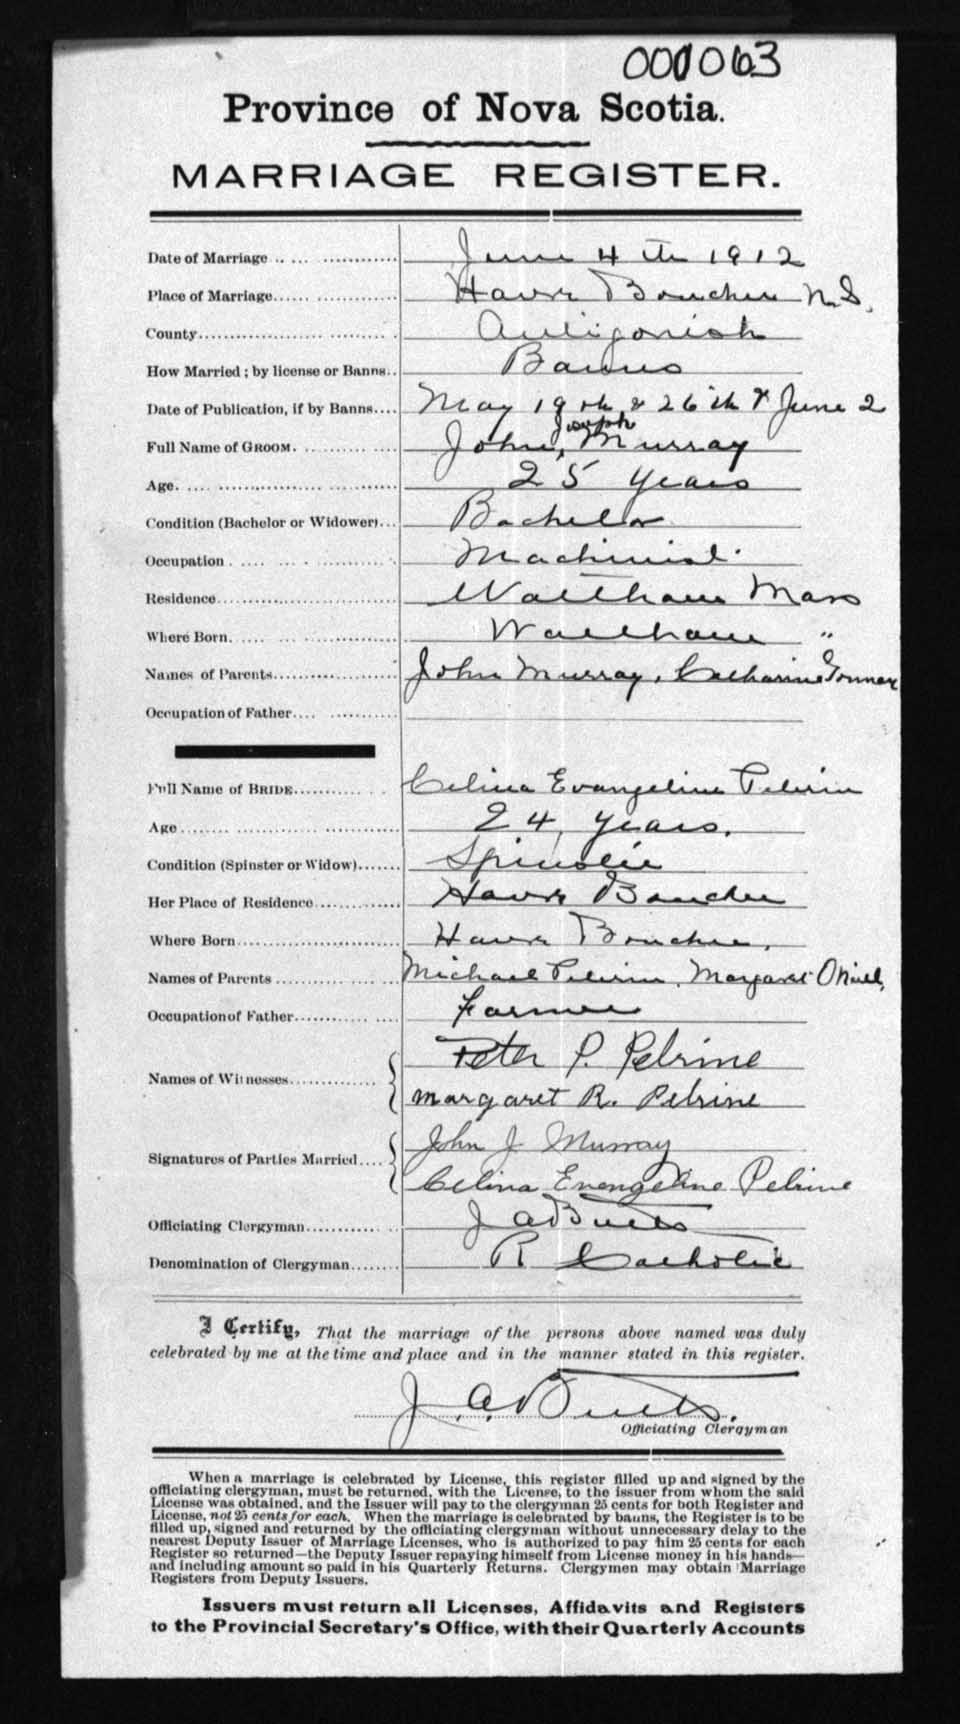 000063
Province of Nova Scotia.
MARRIAGE REGISTER.
Date of Marriage June 4th 1912
Place of Marriage Havre Boucher N.S.
County Antigonish
How Married; by license or Banns.. Banns
Date of Publication, if by Banns.... May 19th & 26th & June 2
Full Name of GROOM. John, Joseph Murray
Age. 25 years
Condition (Bachelor or Widower)... Bachelor
Occupation Machinist.
Residence Waltham Mass
Where Born. Waltham "
Names of Parents John Murray, Catharine
Occupation of Father
Full Name of BRIDE Celina Evangeline Pelrin
Age 24, years.
Condition (Spinster or Widow) Spinster
Her Place of Residence Havre Boucher
Where Born Havre Boucher.
Names of Parents Michael Pelrin, Margaret O'Neill,
Occupation of Father Farmer
Names of Witnesses Peter P. Pelrine
Margaret R. Pelrine
Signatures of Parties Married John J Murray
Celina Evengeline Pelrine
Officiating Clergyman J A Butts
Denomination of Clergyman R Catholic
I Certify, That the marriage of the persons above named was duly
celebrated by me at the time and place and in the manner stated in this register.
J. A. Butts.
Officiating Clergyman
When a marriage is celebrated by License, this register filled up and signed by the
officiating clergyman, must be returned, with the License, to the issuer from whom the said
License was obtained, and the Issuer will pay to the clergyman 25 cents for both Register and
License, not 25 cents for each. When the marriage is celebrated by banns, the Register is to be
filled up, signed and returned by the officiating clergyman without unnecessary delay to the
nearest Deputy Issuer of Marriage Licenses, who is authorized to pay him 25 cents for each
Register so returned—the Deputy Issuer repaying himself from License money in his hands—
and including amount so paid in his Quarterly Returns. Clergymen may obtain Marriage
Registers from Deputy Issuers.
Issuers must return all Licenses, Affidavits and Registers
to the Provincial Secretary's Office, with their Quarterly Accounts